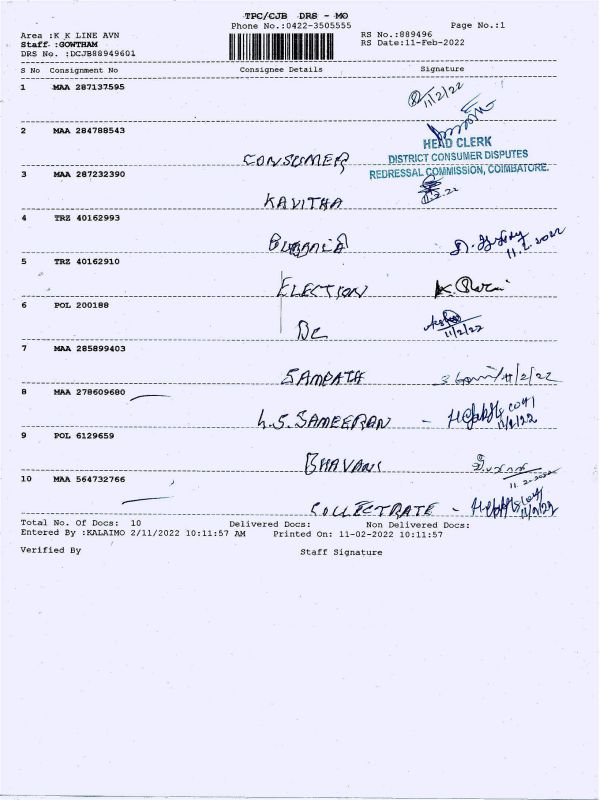 TPC/CJB DRS - MO
Phone No.:0422-3505555 Page No.:1
Area :K K LINE AVN RS No.:889496
Staff :GOWTHAM RS Date:11-Feb-2022
DRS No. :DCJB88949601
S No Consignment No Consignee Details Signature
1 MAA 287137595 11/2/22
2 MAA 284788543
HEAD CLERK
CONSUMER DISTRICT CONSUMER DISPUTES
3 MAA 287232390 REDRESSAL COMMISSION, COIMBATORE.
KAVITHA
4 TRZ 40162993
11.2.2022
5 TRZ 40162910
ELECTION
6 POL 200188
DC 11/2/22
7 MAA 285899403
SAMPATH 11/2/22
8 MAA 278609680
L.S. SAMEERAN 11/2/22
9 POL 6129659
BHAVANI
11.2.2022
10 MAA 564732766
COLLECTRATE 11/2/22
Total No. Of Docs: 10 Delivered Docs: Non Delivered Docs:
Entered By :KALAIMO 2/11/2022 10:11:57 AM Printed On: 11-02-2022 10:11:57
Verified By Staff Signature